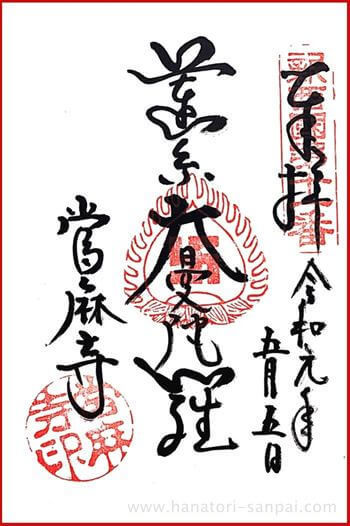 奉拝
令和元年
五月五日
蓮糸大曼陀羅
當麻寺
當麻寺印
www.hanatori-sanpai.com